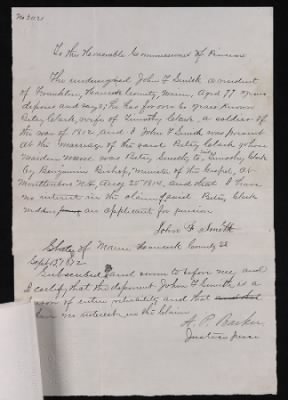 To the Honorable Commissioner of Pension
The undersigned John F Smith a resident
of Franklin, Hancock County, Maine, Aged 77 years
deposes and says; he has for over 60 years known
Betsy Clark, wife of Timothy Clark, a soldier of
the war of 1812 and I John F Smith was present
at the marriage of the said Betsy Clark whose
maiden name was Betsy Smith, to said Timothy Clark
by Benjamin Bishop, Minister of the Gospel, at
N.H, Aug 25 1814, and that I have
no interest in the claim of said Betsy Clark
an applicant for pension
John F Smith
State of Maine Hancock County ss
Sept 13 1872
Subscribed and sworn to before me, and
I certify that the deponent John F Smith is a
person of entire reliability and that and that
I have no interest in the Claim
A. P. Barker
Justice peace